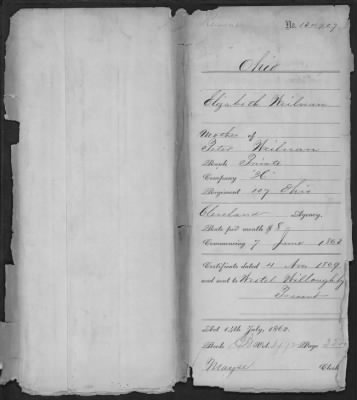 No. 134707
Ohio
Elizabeth Weilman
Mother of
Peter Weilman
Rank Private
Company "H"
Regiment 107 Ohio
Cleveland Agency.
Rate per month $8
Commencing 7 June 186
Certificate dated 4 Nov 1869
and sent to Westel Willoughby
Present
Act 14th July, 1862.
Book Vol. Page
Clerk